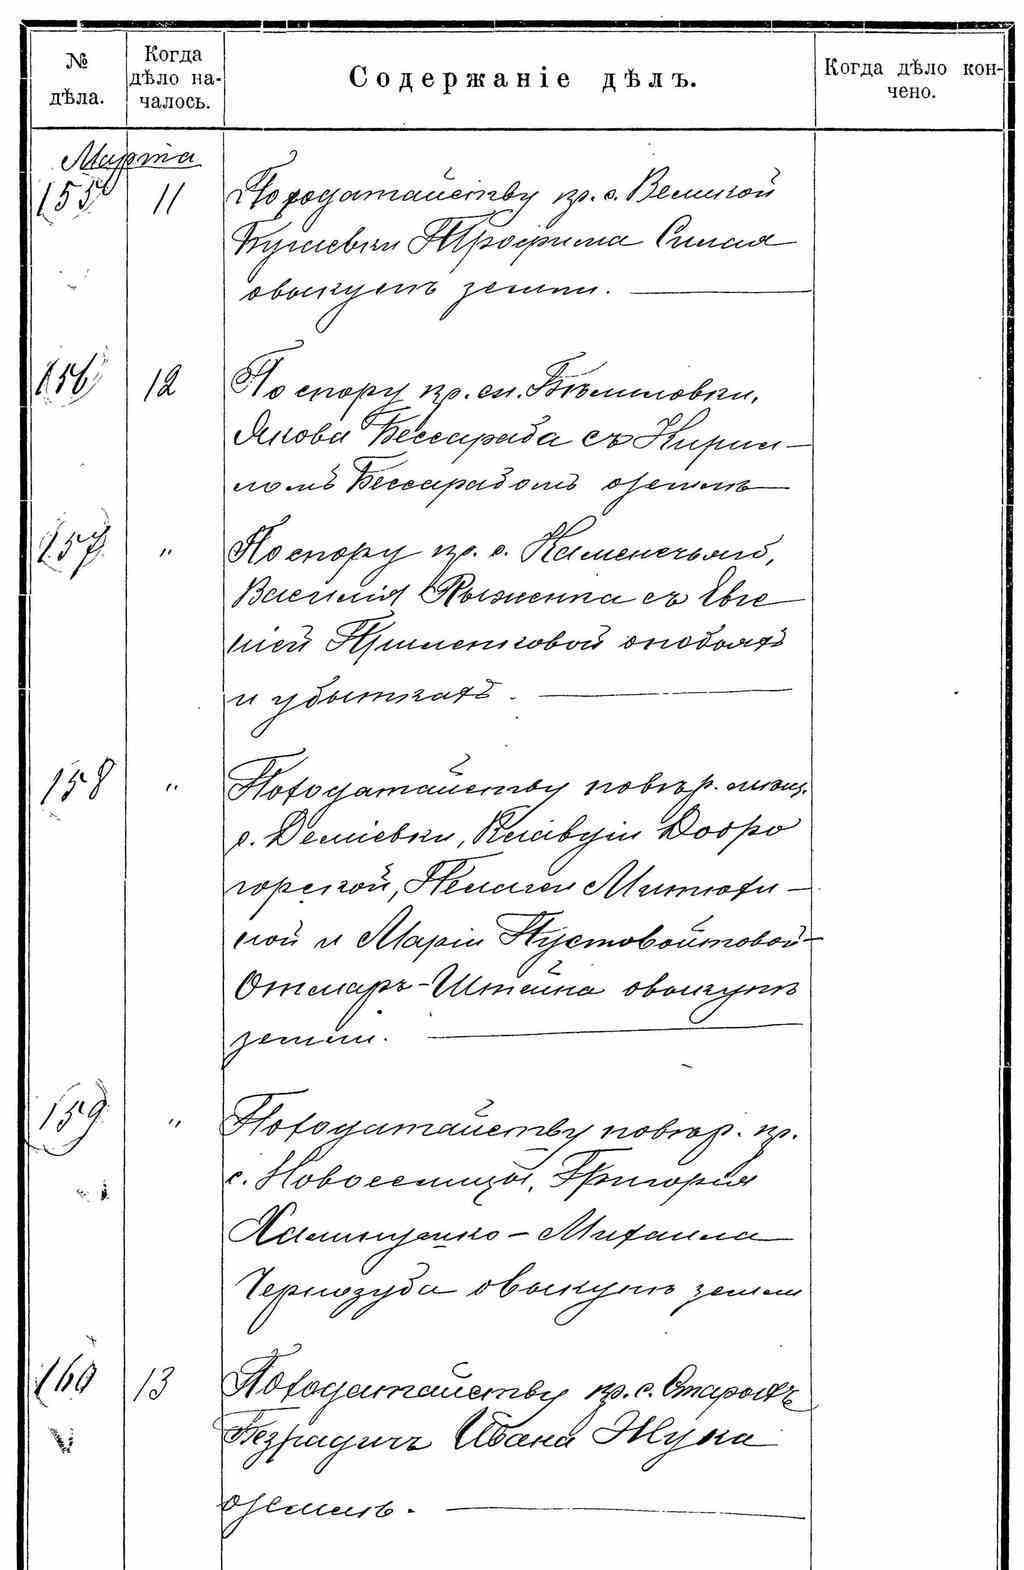 № дѣла.
Когда дѣло началось.
Содержаніе дѣлъ.
Когда дѣло кончено.
Марта
155 11 По ходатайству кр. с. Великой
Бугаевки Трофима Сигая
о выкупѣ земли.
156 12 По спору кр. сл.
Якова Бессараба съ Кирил-
ломъ Бессарабомъ о землѣ
157 " По спору кр. с.
Василія Рыженка съ Евге
ніей о побояхъ
и убыткахъ.
158 " По ходатайству повѣр. мѣщ.
с. Деміевки, Клавдіи Добро
горской, Пелагеи Митюхи-
ной и Маріи Пустовойтовой-
Отмаръ-Штейна о выкупѣ
земли.
159 " По ходатайству повѣр. кр.
с. Новоселицы, Григорія
Халимушко - Михаила
Чернозуба о выкупѣ земли
160 13 По ходатайству кр. с. Старыхъ
Безрадичъ Ивана Жука
о землѣ.